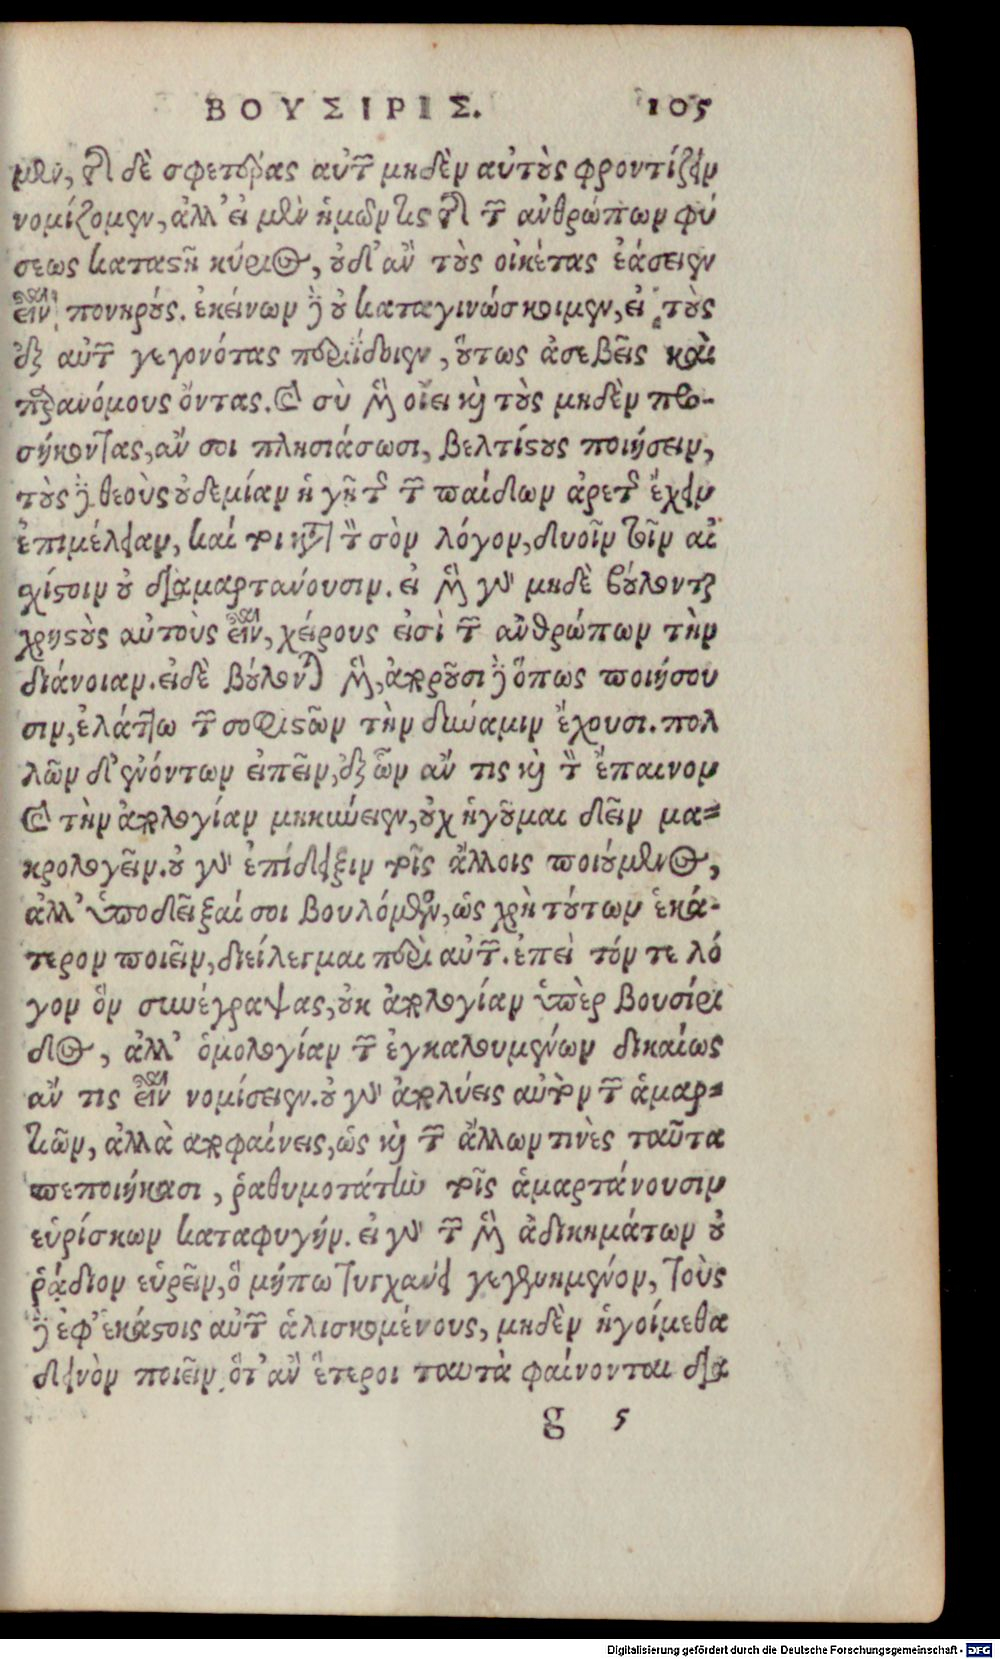 ΒΟΥΣΙΡΙΣ. 105
μεν, τῆς δὲ σφετέρας αὐτῶν μηδὲν αὐτοὺς φροντίζειν
νομίζομεν, ἀλλ' εἰ μὲν ἡμῶν τις τῆς τῶν ἀνθρώπων φύ
σεως καταστῇ κύριος, οὐδ' ἂν τοὺς οἰκέτας ἐάσειεν
εἶναι πονηρούς. ἐκείνων δὲ οὐ καταγινώσκοιμεν, εἰ τοὺς
ἐξ αὐτῶν γεγονότας περιίδοιεν, οὕτως ἀσεβεῖς καὶ
παρανόμους ὄντας. καὶ σὺ μὲν οἴει καὶ τοὺς μηδὲν προ-
σήκοντας, ἄν σοι πλησιάσωσι, βελτίστους ποιήσειν,
τοὺς δὲ θεοὺς οὐδεμίαν ἡγῇ τῆς τῶν παίδων ἀρετῆς ἔχειν
ἐπιμέλειαν, καί τοι κατὰ τὸν σὸν λόγον, δυοῖν τοῖν αἰ
σχίστοιν οὐ διαμαρτάνουσιν. εἰ μὲν γὰρ μηδὲ βούλονται
χρηστοὺς αὐτους εἶναι, χείρους εἰσὶ τῶν ἀνθρώπων τὴν
διάνοιαν. εἰ δὲ βούλονται μὲν, ἀποροῦσι δὲ ὅπως ποιήσου
σιν, ἐλάττω τῶν σοφιστῶν τὴν δύναμιν ἔχουσι. πολ
λῶν δ' ἐνόντων εἰπεῖν, ἐξ ὧν ἄν τις καὶ τὸν ἔπαινον
καὶ τὴν ἀπολογίαν μηκύνειεν, οὐχ ἡγοῦμαι δεῖν μα-
κρολογεῖν. οὐ γὰρ ἐπίδειξιν τοῖς ἄλλοις ποιούμενος,
ἀλλ' ὑποδεῖξαί σοι βουλόμενος, ὡς χρὴ τούτων ἑκά-
τερον ποιεῖν, διείλεγμαι περὶ αὐτῶν. ἐπεὶ τόν τε λό
γον ὃν συνέγραψας, οὐκ ἀπολογίαν ὑπὲρ Βουσίρι
δος, ἀλλ' ὁμολογίαν τῶν ἐγκαλουμένων δικαίως
ἄν τις εἶναι νομίσειεν. οὐ γὰρ ἀπολύεις αὐτὸν τῶν ἁμαρ-
τιῶν, ἀλλὰ ἀποφαίνεις, ὡς καὶ τῶν ἄλλων τινὲς ταῦτα
πεποιήκασι, ῥαθυμοτάτην τοῖς ἁμαρτάνουσιν
εὑρίσκων καταφυγήν. εἰ γὰρ τῶν μὲν ἀδικημάτων οὐ
ῥᾴδιον εὑρεῖν, ὃ μήπω τυγχάνει γεγενημένον, τοὺς
δὲ ἐφ' ἑκάστοις αὐτῶν ἁλισκομένους, μηδὲν ἡγοίμεθα
δεινὸν ποιεῖν, ὅτ' ἂν ἕτεροι ταυτὰ φαίνονται δια
g 5
Digitalisierung gefördert durch die Deutsche Forschungsgemeinschaft - DFG